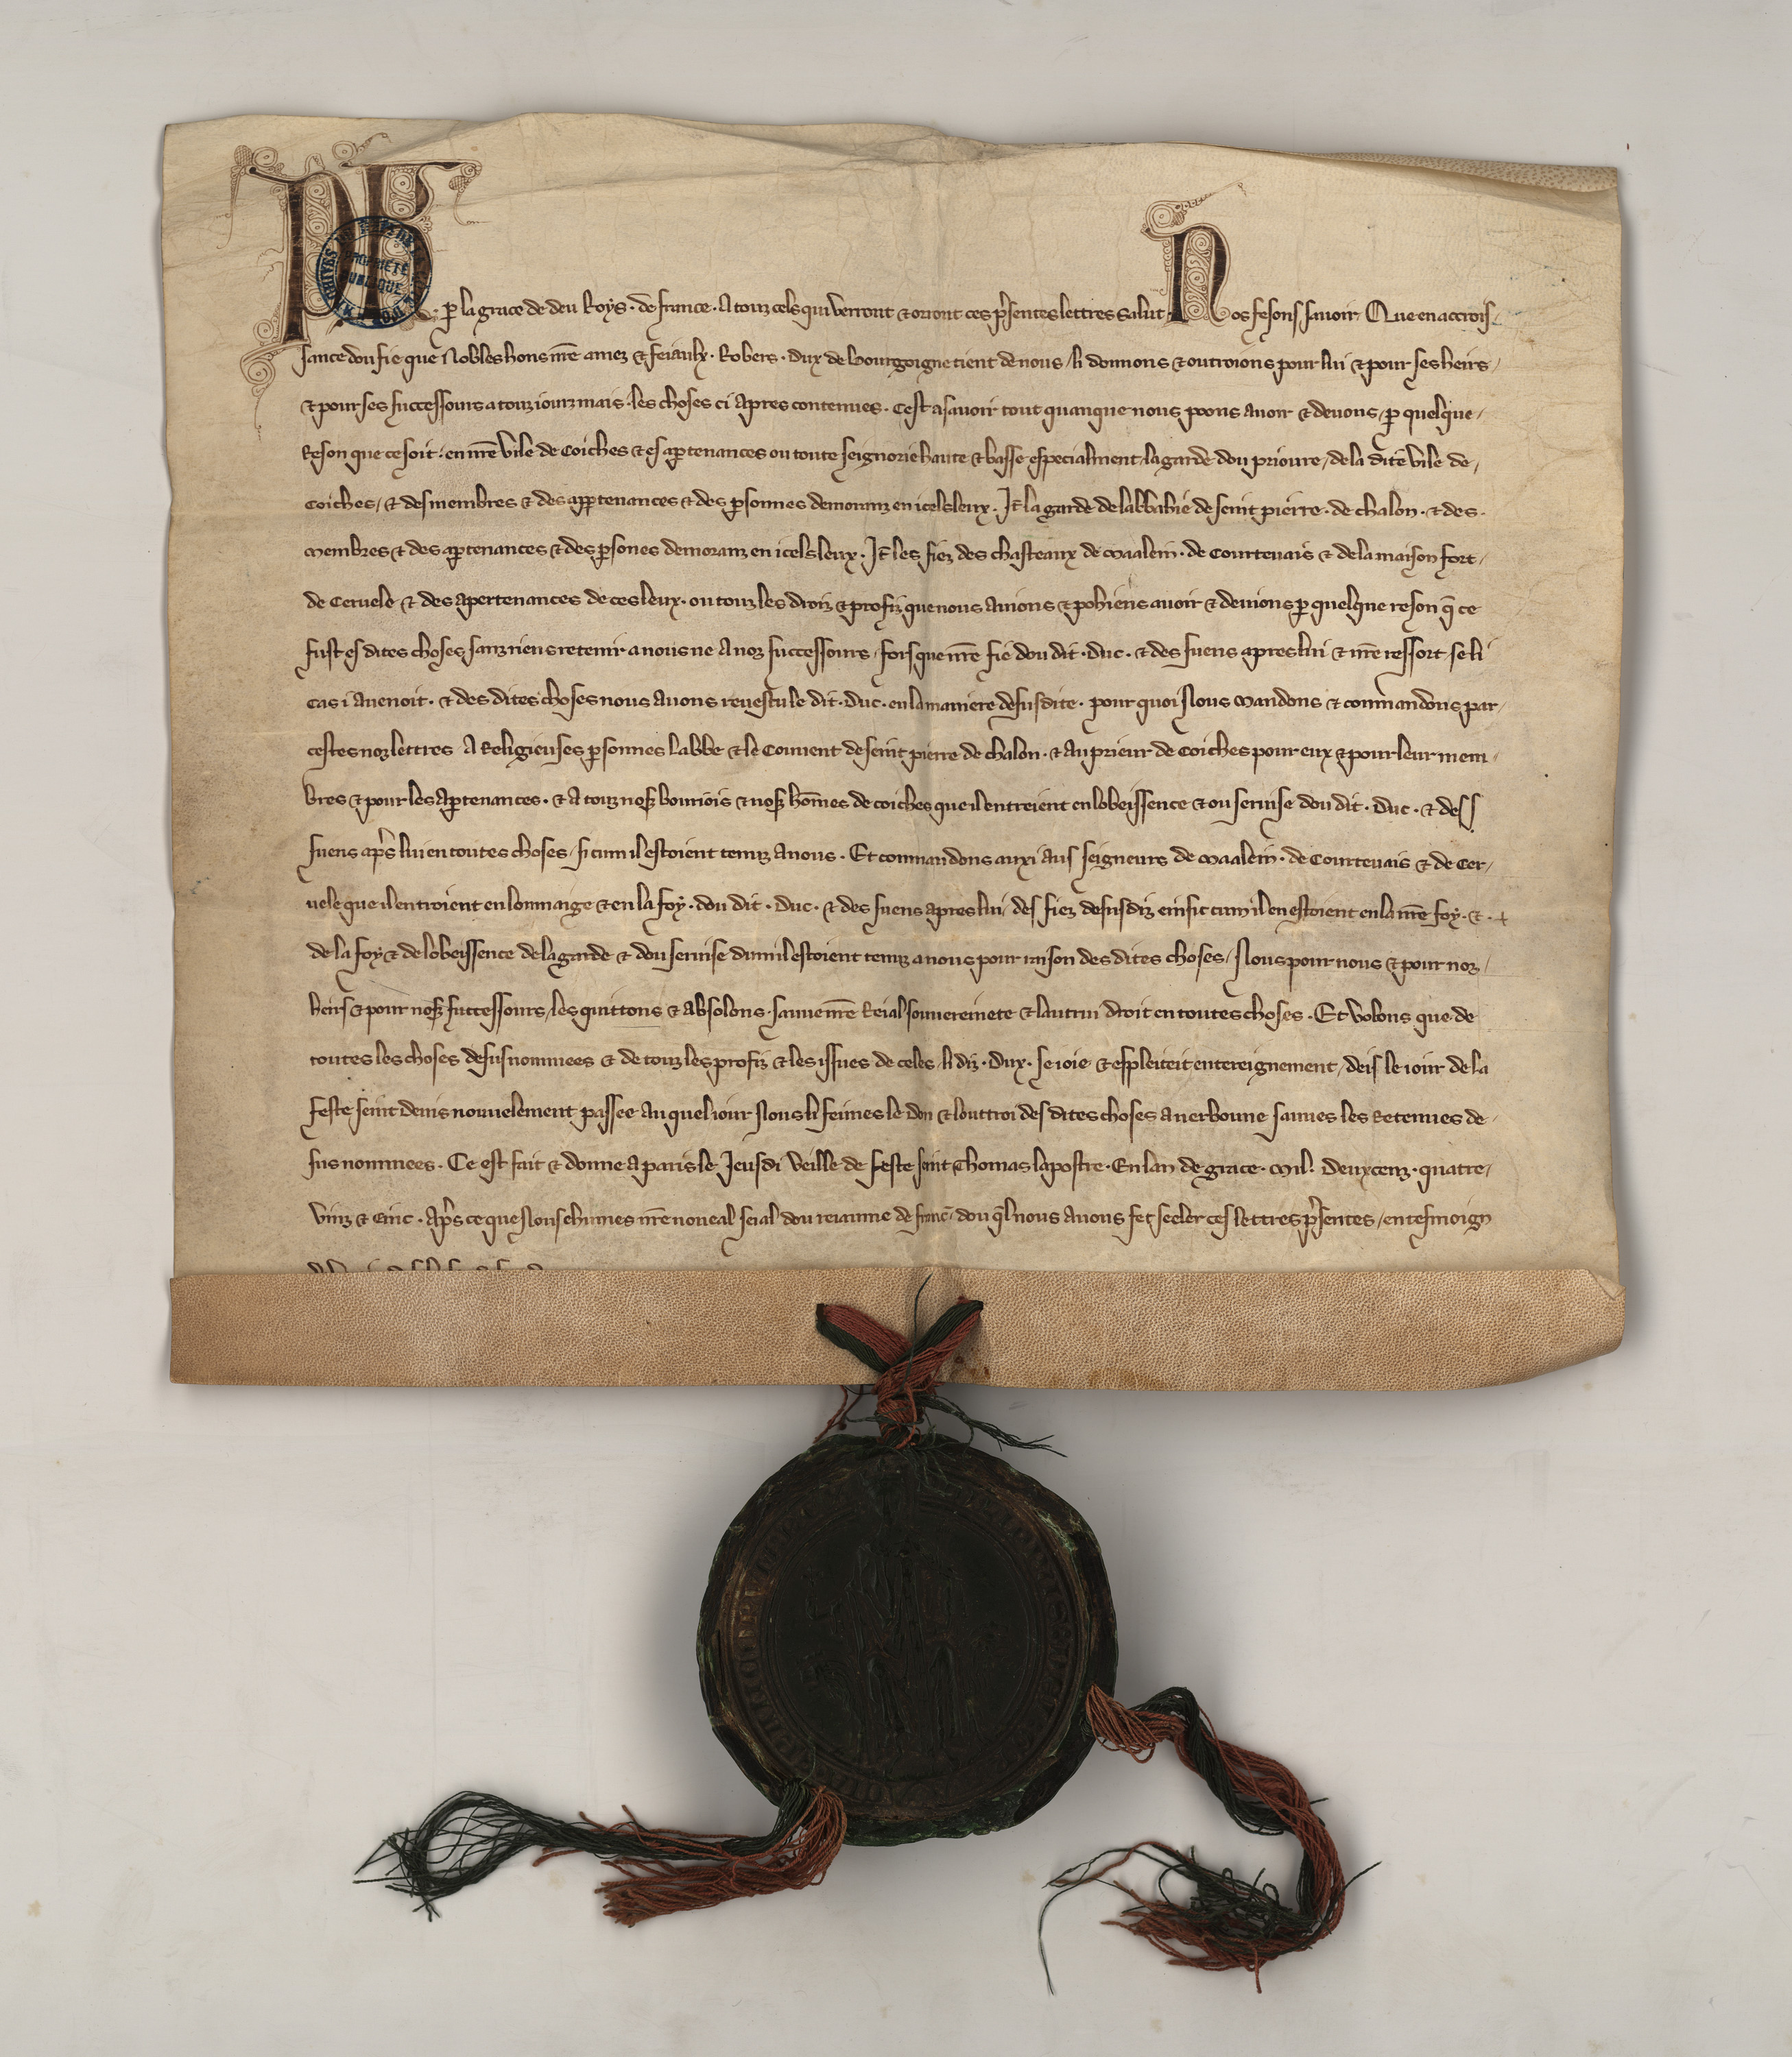 Ph. p la grace de deu Roys . de france . A touz cels qui verront & orront ces psentes lettres salut Nos fesons savoir Que en accrois-
sance dou fie que Nobles hons nre amez & feiaulx . Robers . Dux de bourgoigne tient de nous / li donnons & outroions pour lui & pour ses heirs /
& pour ses successours a touz iourz mais . les choses ci apres contenues . Cest asavoir tout quanque nous poons avoir & devons / p quelque /
Reson que ce soit . en nre vile de Coiches & es aptenances ou toute seignorie haute & basse especialment la garde dou prioure / de la dite vile de /
Coiches / & des membres & des apptenances & des psonnes demoranz en icels leux . It la garde de labbahie de seint pierre . de chalon . & des .
membres & des aptenances & des psones demoranz en icels leux . It les fiez des chasteaux de maalein . de Courtevais & de la maison fort /
de Cervele & des apertenances de ces leux . ou touz les droiz & profiz que nous avions & pohiens avoir & devions p quelque reson q ce
fust es dites choses sanz riens retenir a nous ne a noz successours / fors que nre fie dou dit . Duc . & des suens apres lui & nre ressort se li
cas i avenoit . & des dites choses nous avons revestu le dit . Duc . en la maniere desusdite . pour quoi Nous mandons & commandons par /
cestes noz lettres A Religieuses psonnes Labbe & le Couvent de seint pierre de chalon . & au prieur de Coiches pour eux & pour leur mem /
bres & pour les aptenances . & a touz nosz bouriois & nosz homes de coiches que il entreient en lobeissence & ou servise dou dit . Duc . & des
suens aps lui en toutes choses / si cum il estoient tenuz a nous . Et commandons auxi aus seigneurs de maalein . de Courtevais & de Cer /
vele que il entroient en lommaige & en la foy . dou dit . Duc . & des suens apres lui / des fiez desusdiz einsic cum il en estoient en la nre foy . & .
de la foy & de lobeissence de la garde & dou servise dum il estoient tenuz a nous pour raison des dites choses / Nous pour nous & pour noz /
heirs & pour nosz successours / les quittons & absolons . sauve nre Reial souvereinete & lautrui droit en toutes choses . Et volons que de
toutes les choses desus nommees & de touz les profiz & les issues de celes / li diz . Dux . se ioie & espleiteit entereignement / deis le iour de la
Feste seint denis nouvelement passee au quel iour Nous li feimes le don & louttroi des dites choses a nerbonne sauves les Retenues de /
sus nommees . Ce est fait & donne a paris le Jeusdi veille de feste seint Thomas lapostre . En lan de grace . mil . Deux cenz . quatre /
vinz & Cinc . Aps ce que Nous eheumes nre noveal seial dou reiaume de franc dou ql nous avons fet seeler ces lettres psentes / en tesmoign